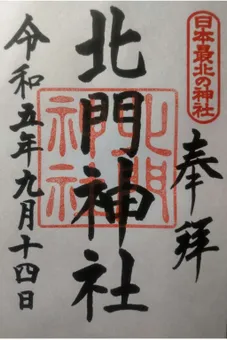 日本最北の神社
奉拜
北門神社
北門神社
令和五年九月十四日